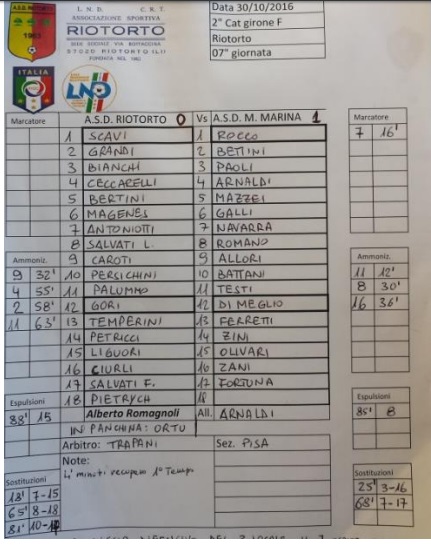 A.S.D. RIOTORTO
1963
L. N. D. C. R. T.
ASSOCIAZIONE SPORTIVA
RIOTORTO
SEDE SOCIALE VIA BOTTACCINA
57020 RIOTORTO (LI)
FONDATA NEL 1963
ITALIA
LND
Data 30/10/2016
2° Cat girone F
Riotorto
07° giornata
Marcatore A.S.D. RIOTORTO 0 Vs A.S.D. M. MARINA 1 Marcatore
1 SCAVI 1 ROCCO 7 16'
2 GRANDI 2 BETTINI
3 BIANCHI 3 PAOLI
4 CECCARELLI 4 ARNALDI
5 BERTINI 5 MAZZEI
6 MAGENES 6 GALLI
7 ANTONIOTTI 7 NAVARRA
8 SALVATI L. 8 ROMANO
Ammoniz. 9 CAROTI 9 ALLORI Ammoniz.
9 32' 10 PERSICHINI 10 BATTANI 11 12'
4 55' 11 PALUMMO 11 TESTI 8 30'
2 58' 12 GORI 12 DI MEGLIO 16 36'
11 63' 13 TEMPERINI 13 FERRETTI
14 PETRICCI 14 ZINI
15 LIGUORI 15 OLIVARI
16 CIURLI 16 ZANI
Espulsioni 17 SALVATI F. 17 FORTUNA Espulsioni
88' 15 18 PIETRYCH 18 85' 8
Alberto Romagnoli All. ARNALDI
IN PANCHINA: ORTU
Arbitro: TRAPANI Sez. PISA
Note:
4' minuti recupero 1° Tempo
Sostituzioni Sostituzioni
18' 7-15 25' 3-16
65' 8-18 68' 7-17
81'